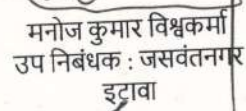 मनोज कुमार विश्वकर्मा
उप निबंधक : जसवंतनगर
इटावा